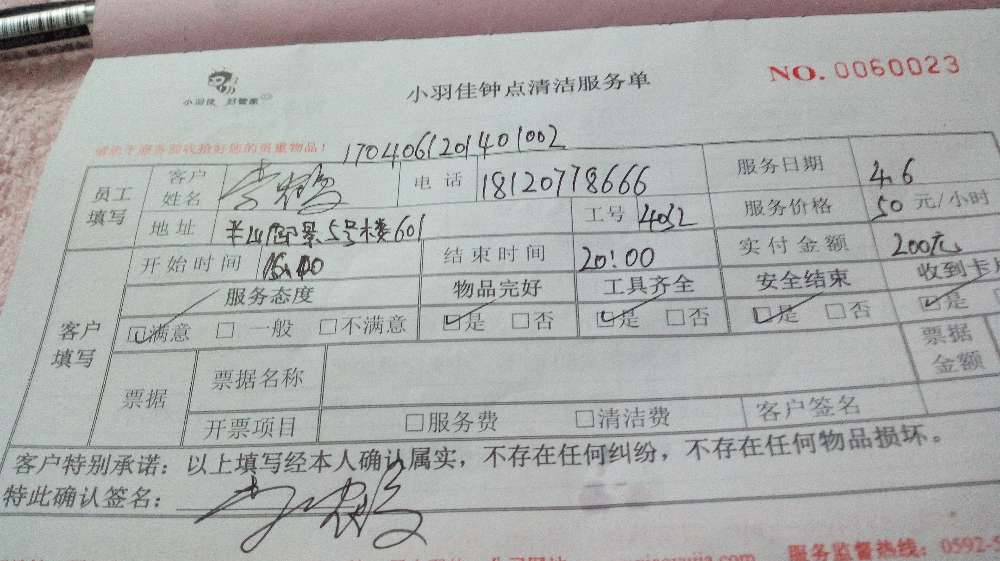 小羽佳 好管家
小羽佳钟点清洁服务单
NO. 0060023
1704061201401002
员工填写 客户姓名 电话 18120778666 服务日期 4.6
地址 半山御景5号楼601 工号 4032 服务价格 50元/小时
开始时间 16:00 结束时间 20:00 实付金额 200元
服务态度 物品完好 工具齐全 安全结束 收到卡
客户填写 ☑满意 □一般 □不满意 ☑是 □否 ☑是 □否 ☑是 □否 ☑是
票据 票据名称 票据金额
开票项目 □服务费 □清洁费 客户签名
客户特别承诺：以上填写经本人确认属实，不存在任何纠纷，不存在任何物品损坏。
特此确认签名：
服务监督热线：0592-5